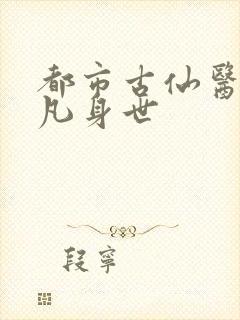 都市古仙醫
凡身世
段寧